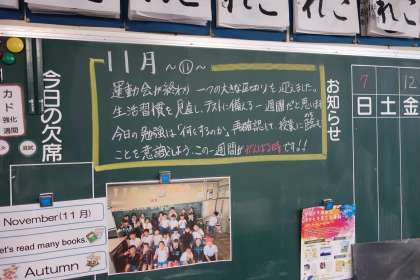 11月 ~⑪~
運動会が終わり 一つの大きな区切りを迎えました。
生活習慣を見直し、テストに備える一週間だと思います
今日の勉強は「何をするのか」、再確認して、授業に臨む
ことを意識しよう。この一週間が がんばる時です!!
お知らせ
今日の欠席
カド
強化
週間
7
12
日 土 金
November(11月)
Let's read many books.
Autumn